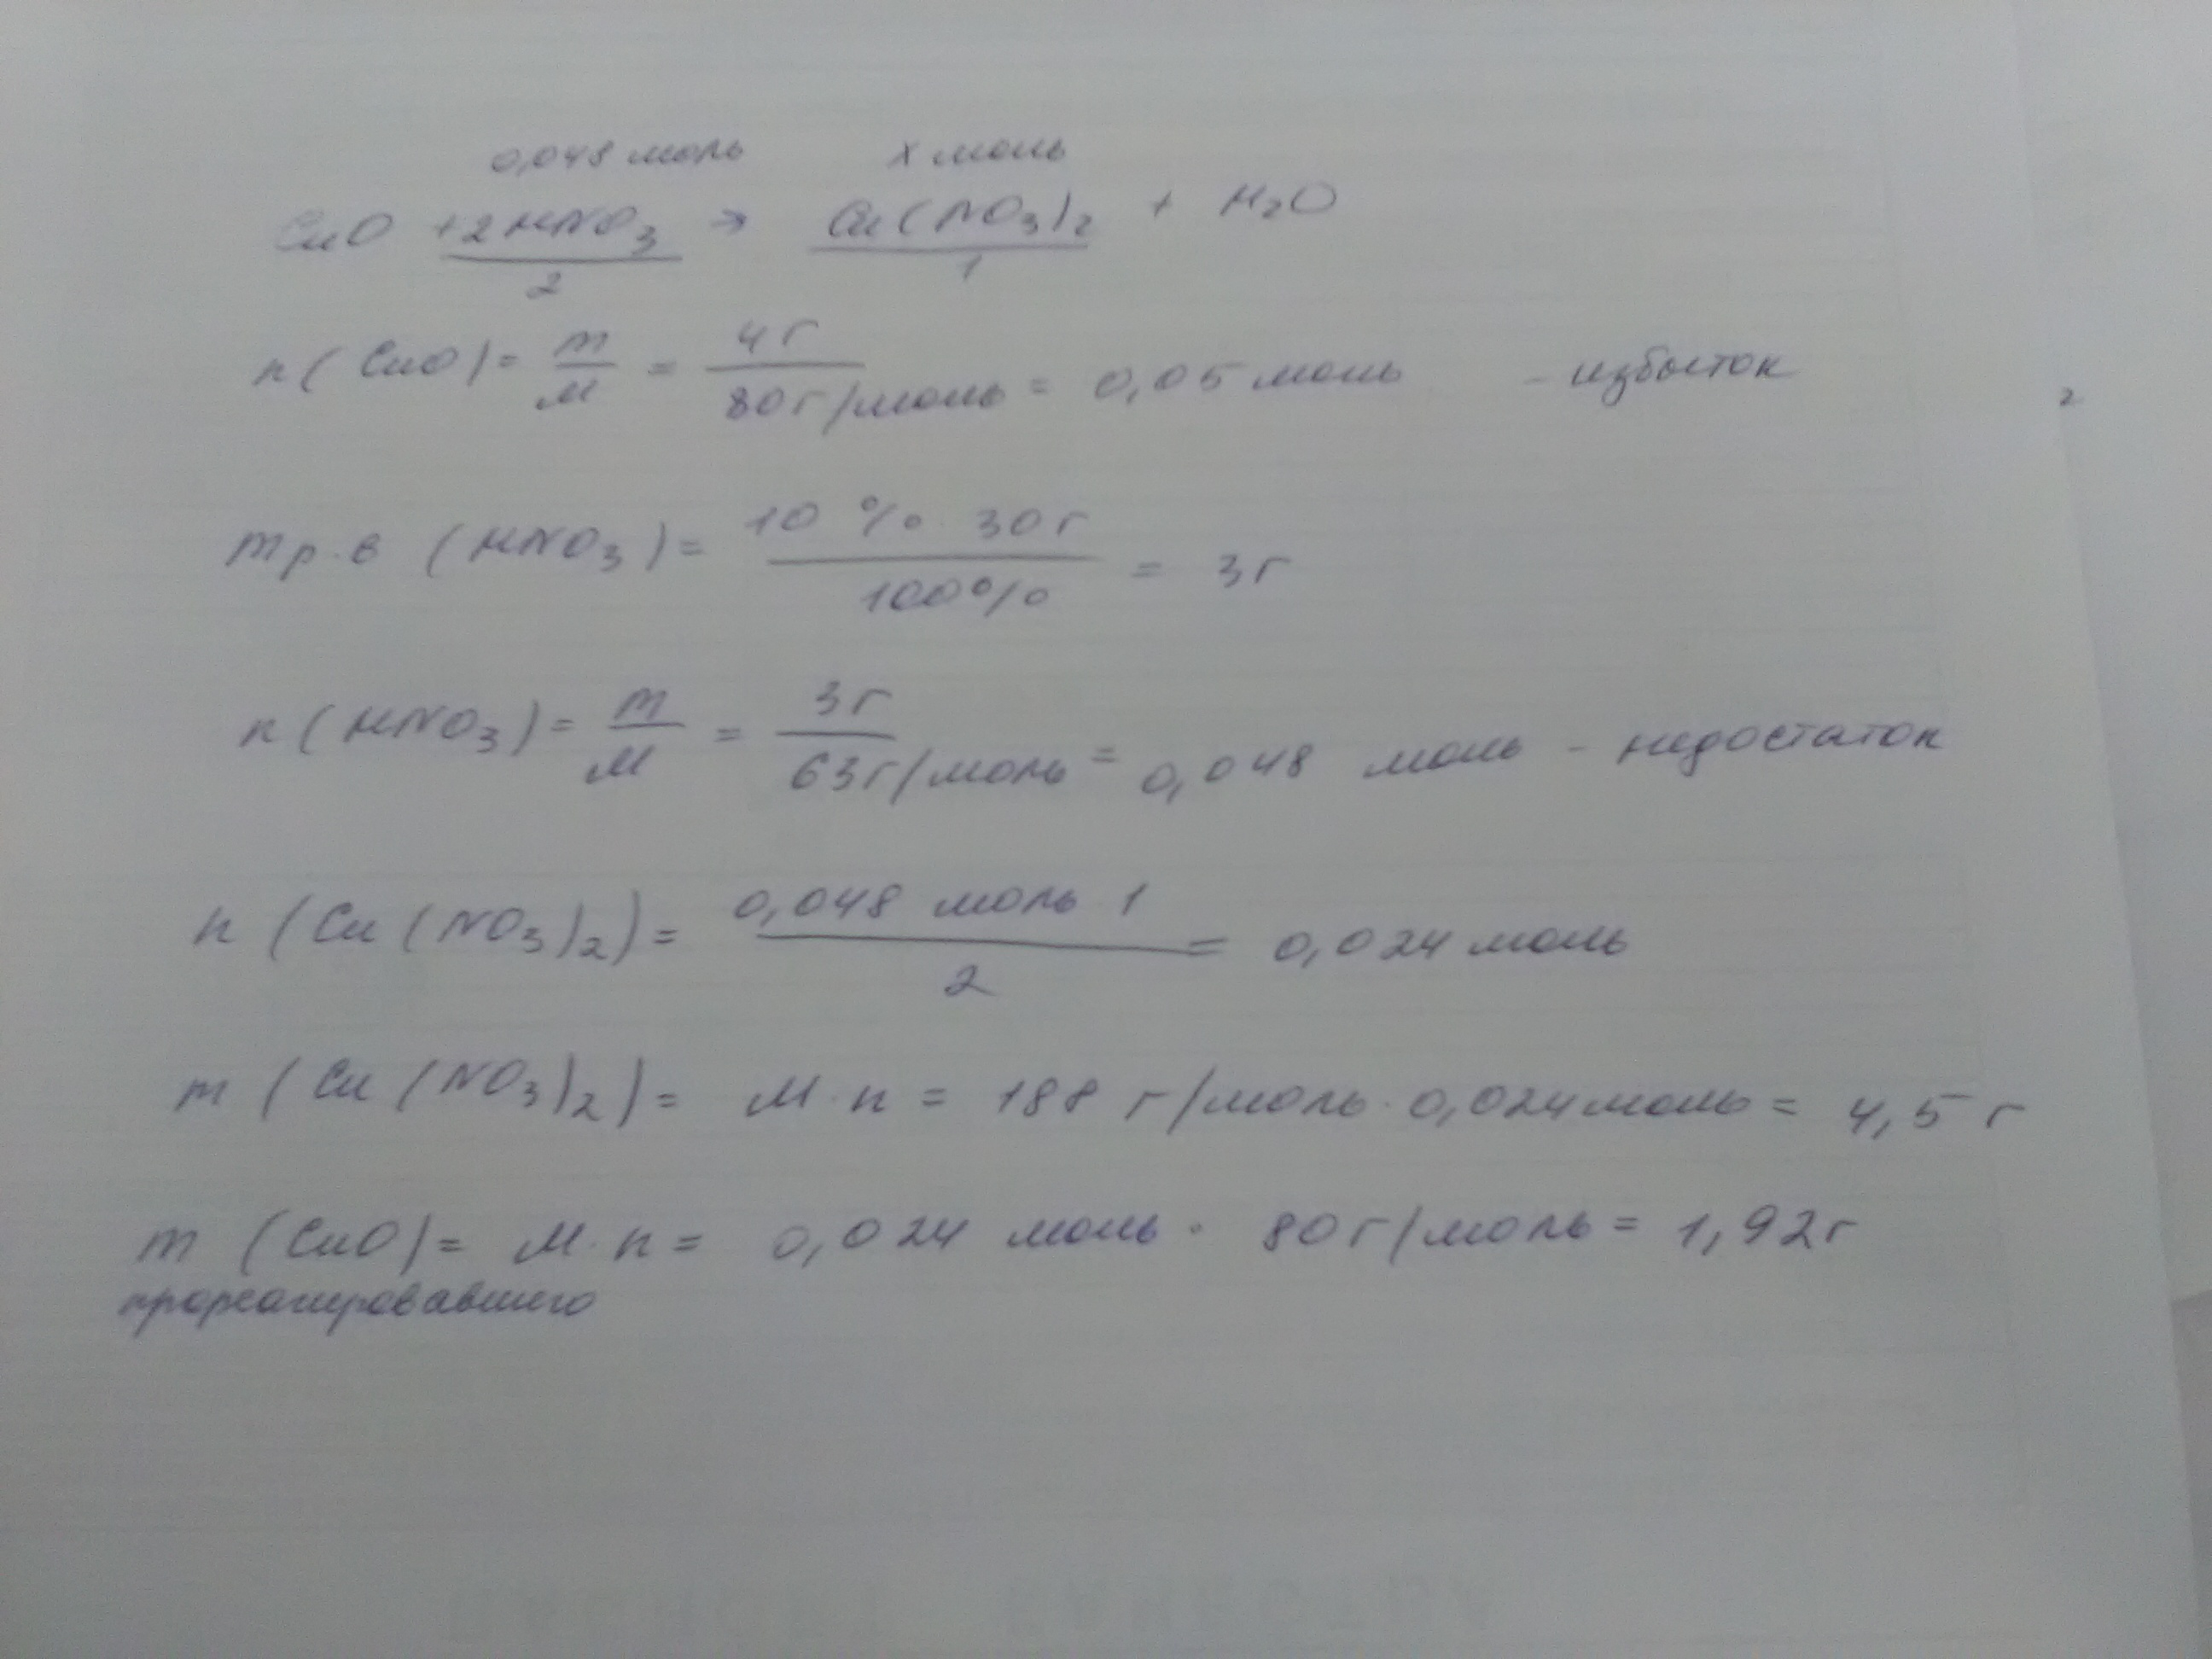 0,048 моль х моль
CuO +2HNO3 → Cu(NO3)2 + H2O
2 1
n(CuO)= m/M = 4г/80г/моль = 0,05 моль - избыток
2
mр.в (HNO3)= 10 % · 30г/100% = 3г
n(HNO3)= m/M = 3г/63г/моль = 0,048 моль - недостаток
n (Cu (NO3)2)= 0,048 моль · 1/2 = 0,024 моль
m (Cu (NO3)2)= M·n = 188 г/моль · 0,024 моль = 4,5 г
m (CuO)= M·n = 0,024 моль · 80г/моль = 1,92г
прореагировавшего